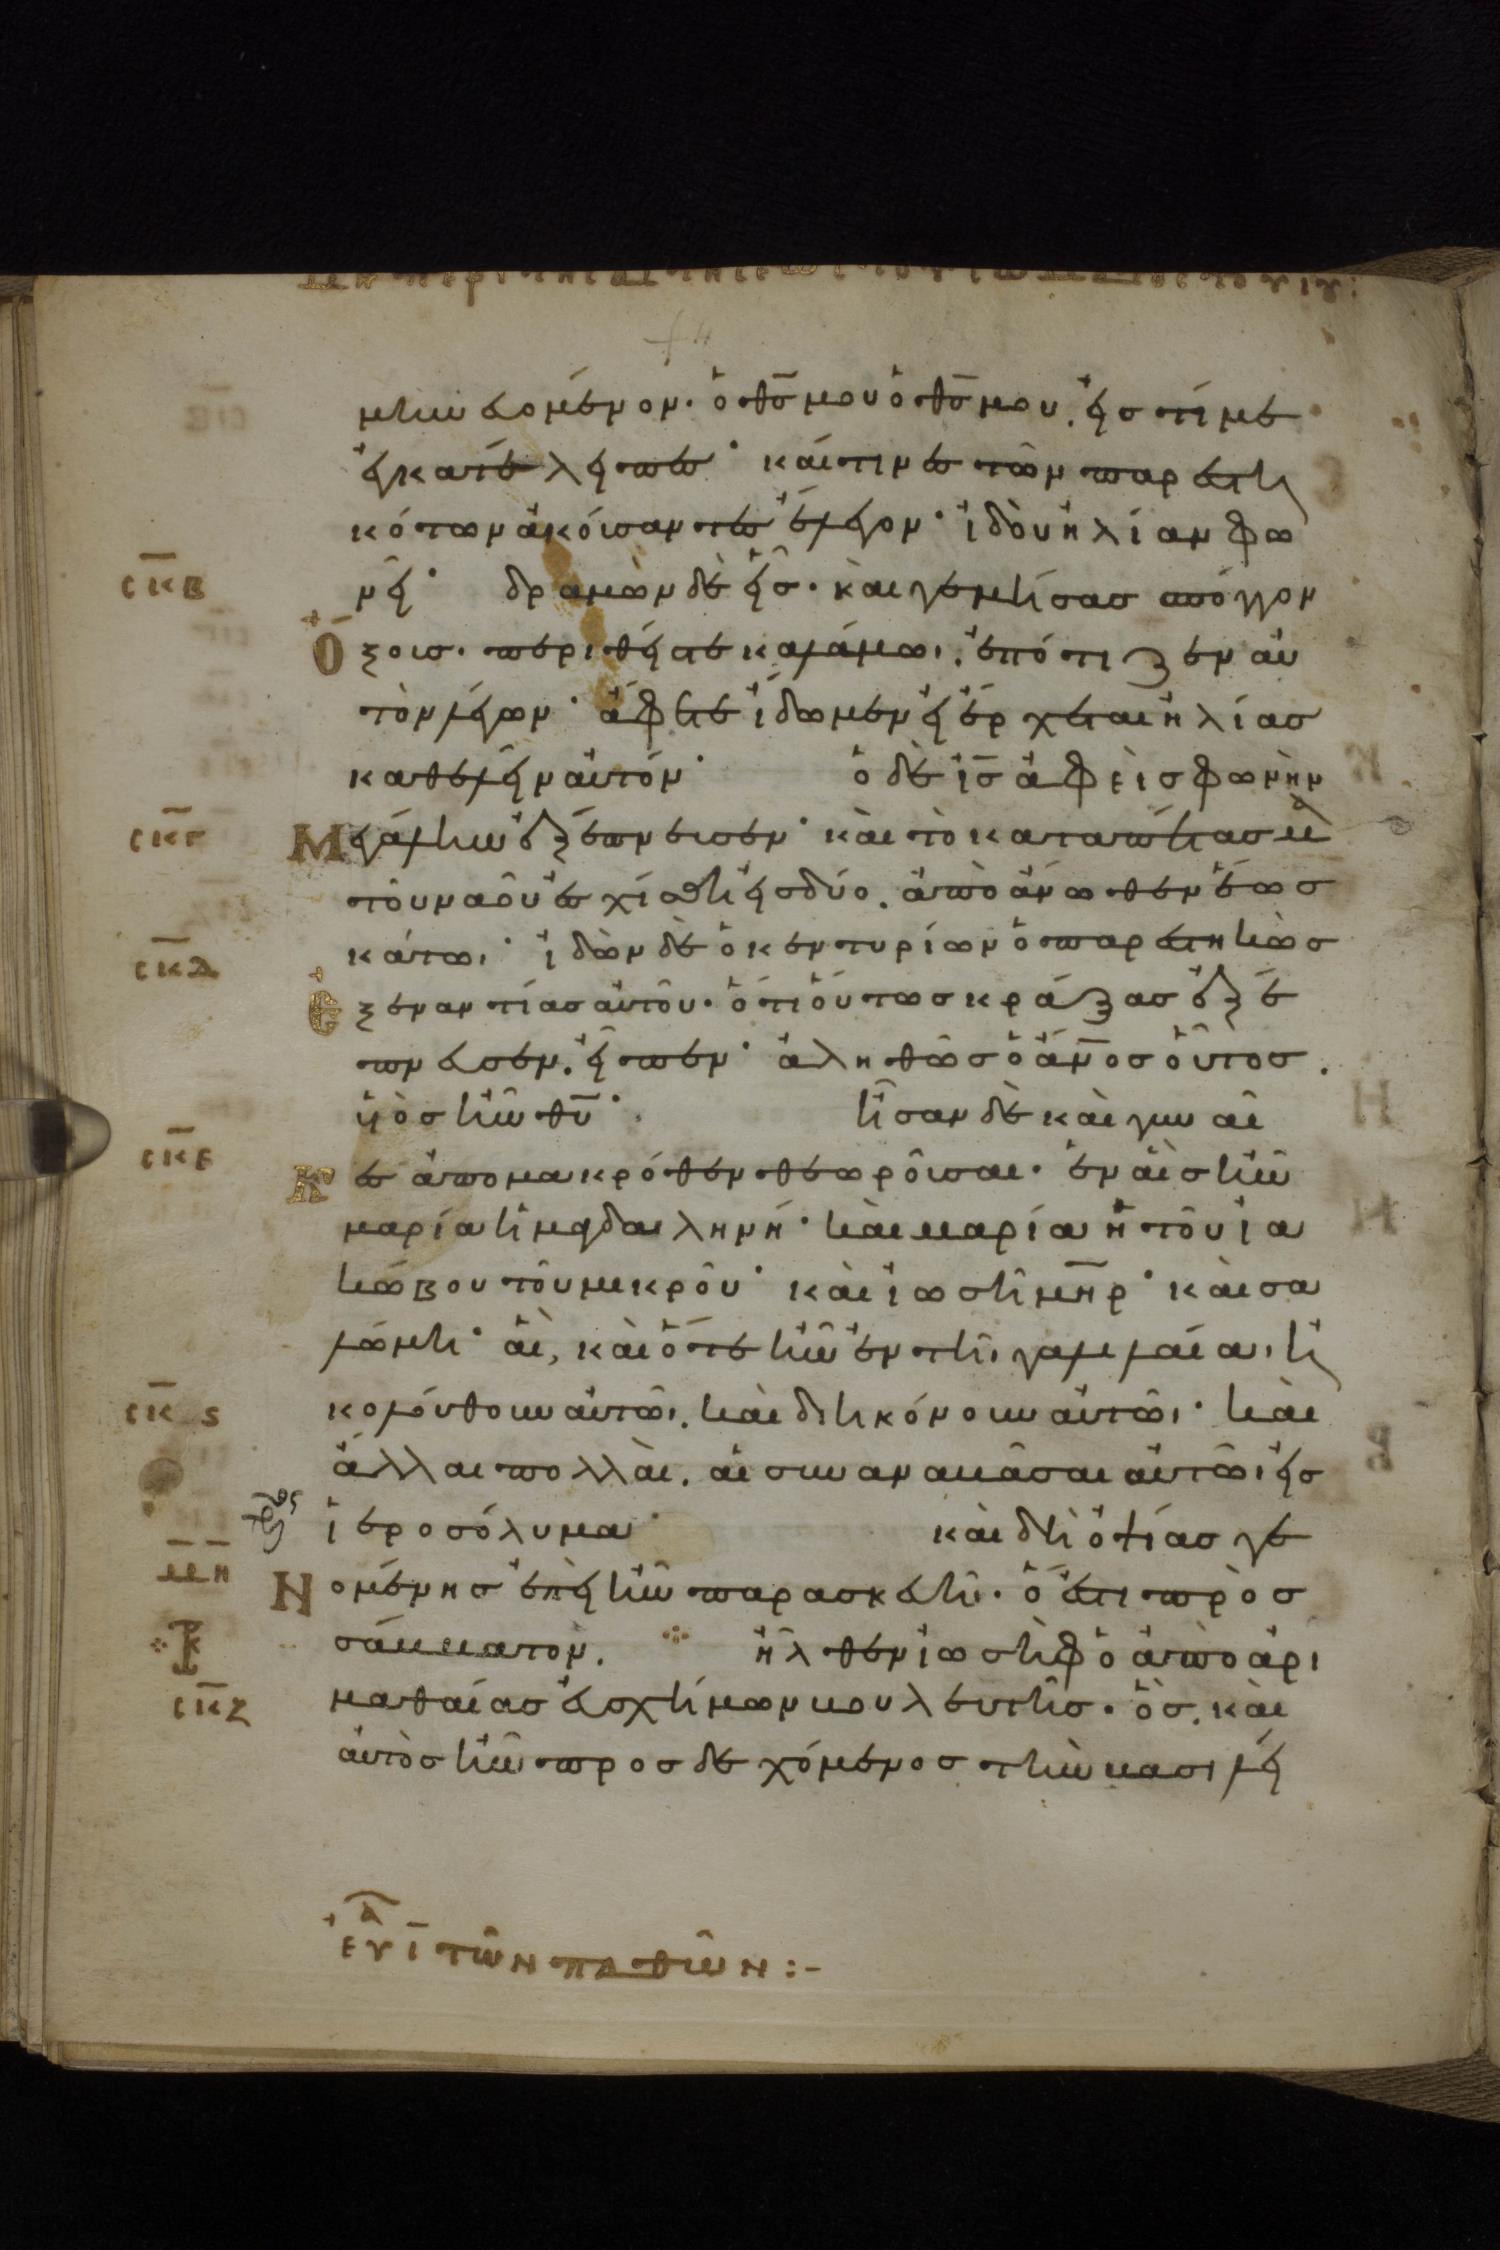 μη περὶ τῆς αἰτήσεως τοῦ σώματος τοῦ ιυ:
μηνευόμενον· ὁ θς μου ὁ θς μου, εἰς τί με
ἐγκατέλειπες· καί τινες τῶν παρεστη
κότων ἀκούσαντες ἔλεγον· ἰδοὺ ἠλίαν φω
νεῖ· δραμὼν δὲ εἷς· καὶ γεμίσας σπόγγον
ὄξους· περιθείς τε καλάμωι, ἐπότιζεν αὐ
τὸν λέγων· ἄφετε ἴδωμεν εἰ ἔρχεται ἠλίας
καθελεῖν αὐτόν· ὁ δὲ ις ἀφεὶς φωνὴν
Μεγάλην ἐξέπνευσεν· καὶ τὸ καταπέτασμα
τοῦ ναοῦ ἐσχίσθη εἰς δύο, ἀπὸ ἄνωθεν ἕως
κάτω· ἰδὼν δὲ ὁ κεντυρίων ὁ παρεστηκὼς
ἐξεναντίας αὐτοῦ· ὅτι οὕτως κράξας ἐξέ
πνευσεν, εἶπεν· ἀληθῶς ὁ ανος οὗτος,
υἱὸς ἦν θυ· ἦσαν δὲ καὶ γυναῖ
Κες ἀπομακρόθεν θεωροῦσαι· ἐν αἷς ἦν
μαρία ἡ μαγδαληνή· καὶ μαρία ἡ τοῦ ἰα
κώβου τοῦ μικροῦ· καὶ ἰωσῆ μηρ· καὶ σα
λώμη· αἳ, καὶ ὅτε ἦν ἐν τῆι γαλιλαίαι ἠ
κολούθουν αὐτῶι, καὶ διηκόνουν αὐτῶι· καὶ
ἄλλαι πολλαὶ, αἱ συναναβᾶσαι αὐτῶι εἰς
ἱεροσόλυμα· καὶ δὴ ὀψίας γε
Νομένης ἐπεὶ ἦν παρασκευὴ· ὅ ἐστι πρὸς
σάββατον, ἦλθεν ἰωσὴφ ὁ ἀπὸ ἀρι
μαθαίας εὐσχήμων βουλευτῆς· ὃς, καὶ
αὐτὸς ἦν προσδεχόμενος τὴν βασιλεί
σκβ
σκγ
σκδ
σκε
σκς
μη
σκζ
εὐ ι τῶν παθῶν:-